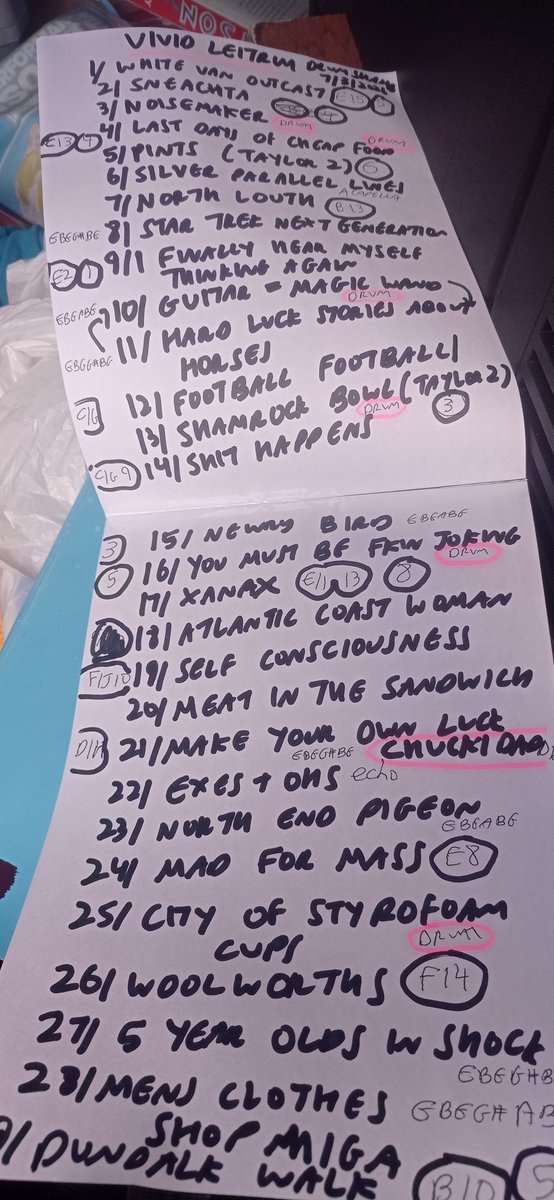 VIVID LEITRIM DRUMSHANBO
7/3/2026
1/ WHITE VAN OUTCAST E15
2/ SNEACHTA
3/ NOISEMAKER DRUM
E13 4/ LAST DAYS OF CHEAP FOOD DRUM
5/ PINTS (TAYLOR 2)
6/ SILVER PARALLEL LINES
7/ NORTH LOUTH B13 ACAPELLA
EBEG#BE 8/ STAR TREK NEXT GENERATION
E2 1 9/ I FINALLY HEAR MYSELF
THINKING AGAIN
EBEABE 10/ GUITAR = MAGIC WAND
DRUM
EBEG#BE 11/ HARD LUCK STORIES ABOUT
HORSES
C/G 12/ FOOTBALL FOOTBALL/
13/ SHAMROCK BOWL (TAYLOR 2)
DRUM 3
C/G 9 14/ SHIT HAPPENS
3 15/ NEWRY BIRD EBEABE
5 16/ YOU MUST BE FKN JOKING
DRUM
17/ XANAX E/1 13 8
18/ ATLANTIC COAST WOMAN
F/J10 19/ SELF CONSCIOUSNESS
20/ MEAT IN THE SANDWICH
D/H 21/ MAKE YOUR OWN LUCK
EBEG#BE
22/ EXES + OHS echo
23/ NORTH END PIGEON
EBEABE
24/ MAD FOR MASS E8
25/ CITY OF STYROFOAM
CUPS DRUM
26/ WOOLWORTHS F14
27/ 5 YEAR OLDS IN SHOCK
EBEG#B
28/ MENS CLOTHES EBEG#AB
SHOP MIGA
9/ DUNDALK WALK B/D